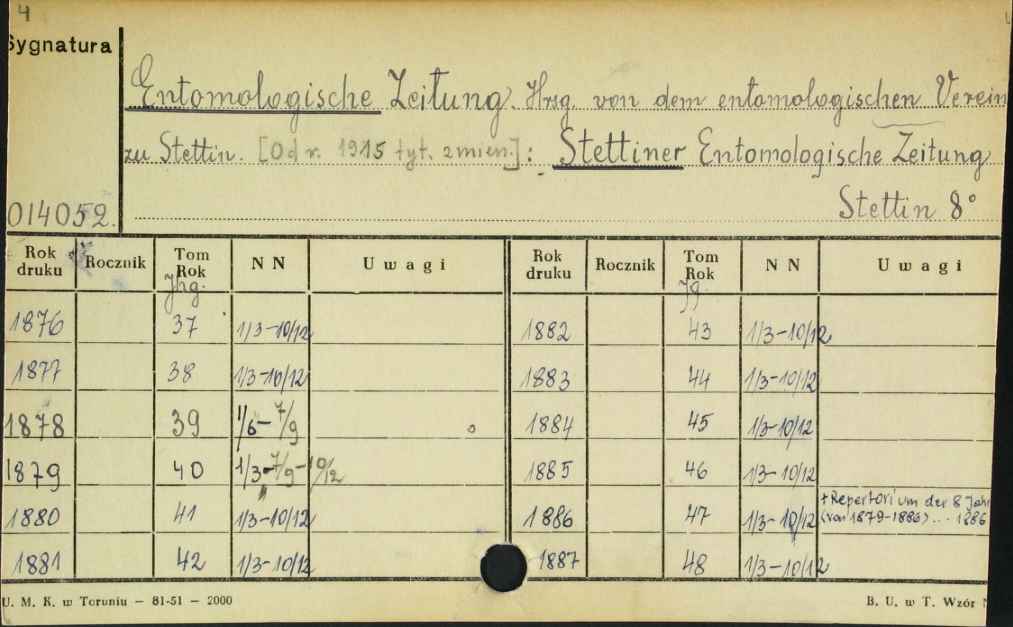 4
Sygnatura
Entomologische Zeitung. Hrsg. von dem entomologischen Verein
zu Stettin. [Od r. 1915 tyt. zmien.]: Stettiner Entomologische Zeitung
014052. Stettin 8°
Rok druku Rocznik Tom Rok Jhg. NN Uwagi Rok druku Rocznik Tom Rok Jg. NN Uwagi
1876 37 1/3-10/12 1882 43 1/3-10/12
1877 38 1/3-10/12 1883 44 1/3-10/12
1878 39 1/6-7/9 1884 45 1/3-10/12
1879 40 1/3-7/9-10/12 1885 46 1/3-10/12
1880 41 1/3-10/12 1886 47 1/3-10/12 +Repertorium der 8 Jahr (von 1879-1886)... 1886
1881 42 1/3-10/12 1887 48 1/3-10/12
U. M. K. w Toruniu — 81-51 — 2000 B. U. w T. Wzór